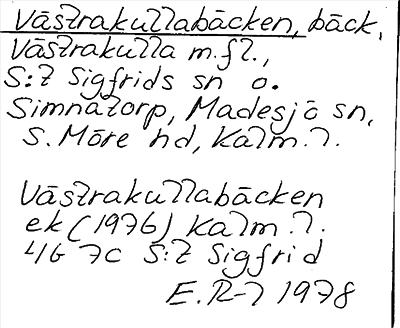 Västrakullabäcken, bäck,
Västrakulla m.fl.,
S:t Sigfrids sn o.
Simnatorp, Madesjö sn,
S. Möre hd, Kalm. l.
Västrakullabäcken
ek (1976) Kalm. l.
4G 7c S:t Sigfrid
E.R-l 1978